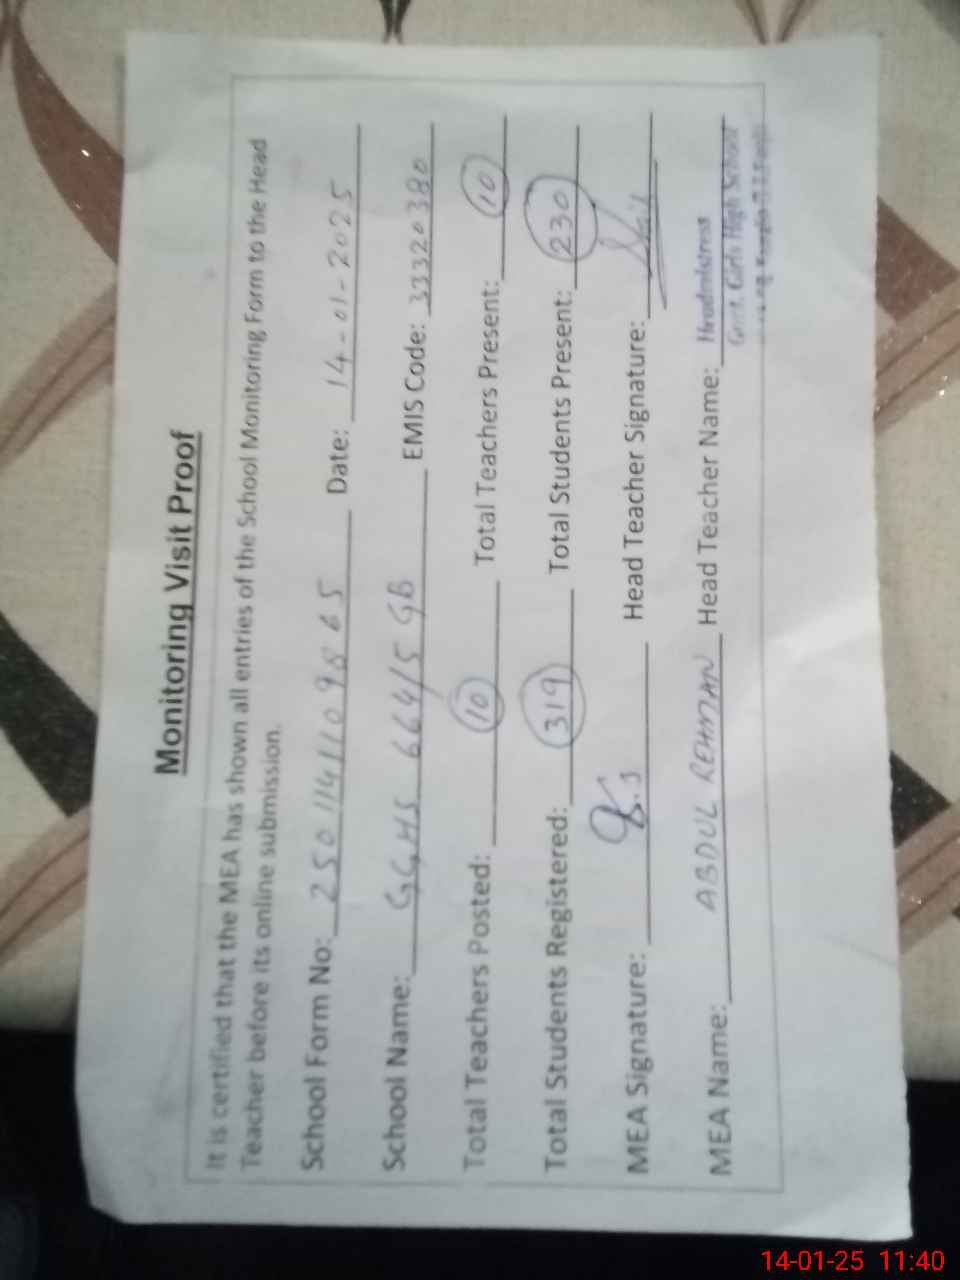 Monitoring Visit Proof
It is certified that the MEA has shown all entries of the School Monitoring Form to the Head
Teacher before its online submission.
School Form No: 2501141109865 Date: 14-01-2025
School Name: GGHS 664/5 GB EMIS Code: 33320380
Total Teachers Posted: 10 Total Teachers Present: 10
Total Students Registered: 319 Total Students Present: 230
MEA Signature: Head Teacher Signature:
MEA Name: ABDUL REHMAN Head Teacher Name: Headmistress
Govt. Girls High School
14-01-25 11:40